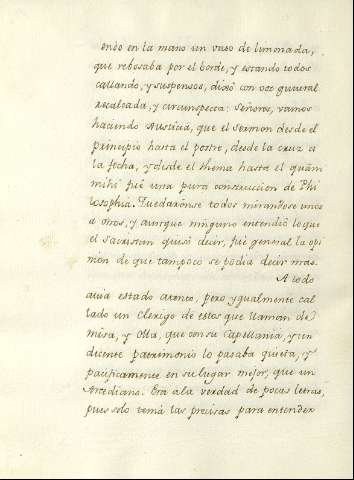 endo en la mano un vaso de limonada,
que rebosaba por el borde, y estando todos
callando, y suspensos, dixo con voz gutural
recalcada, y circunspecta: Señores, vamos
haciendo Justicia, que el Sermon desde el
principio hasta el postre, desde la cruz a
la fecha, y desde el thema hasta el quam
mihi fué una pura construccion de Phi
losophia. Quedaronse todos mirandose unos
a otros, y aunque ninguno entendió lo que
el Sacristan quiso decir, fué general la opi
nion de que tampoco se podia decir mas.
A todo
avia estado atento, pero ygualmente cal
lado un Clerigo de estos que llaman de
misa, y olla, que con su Capellania, y un
decente patrimonio lo pasaba quieta, y
pacificamente en su lugar mejor, que un
Arcediano. Era a la verdad de pocas letras,
pues solo tenia las precisas para entender